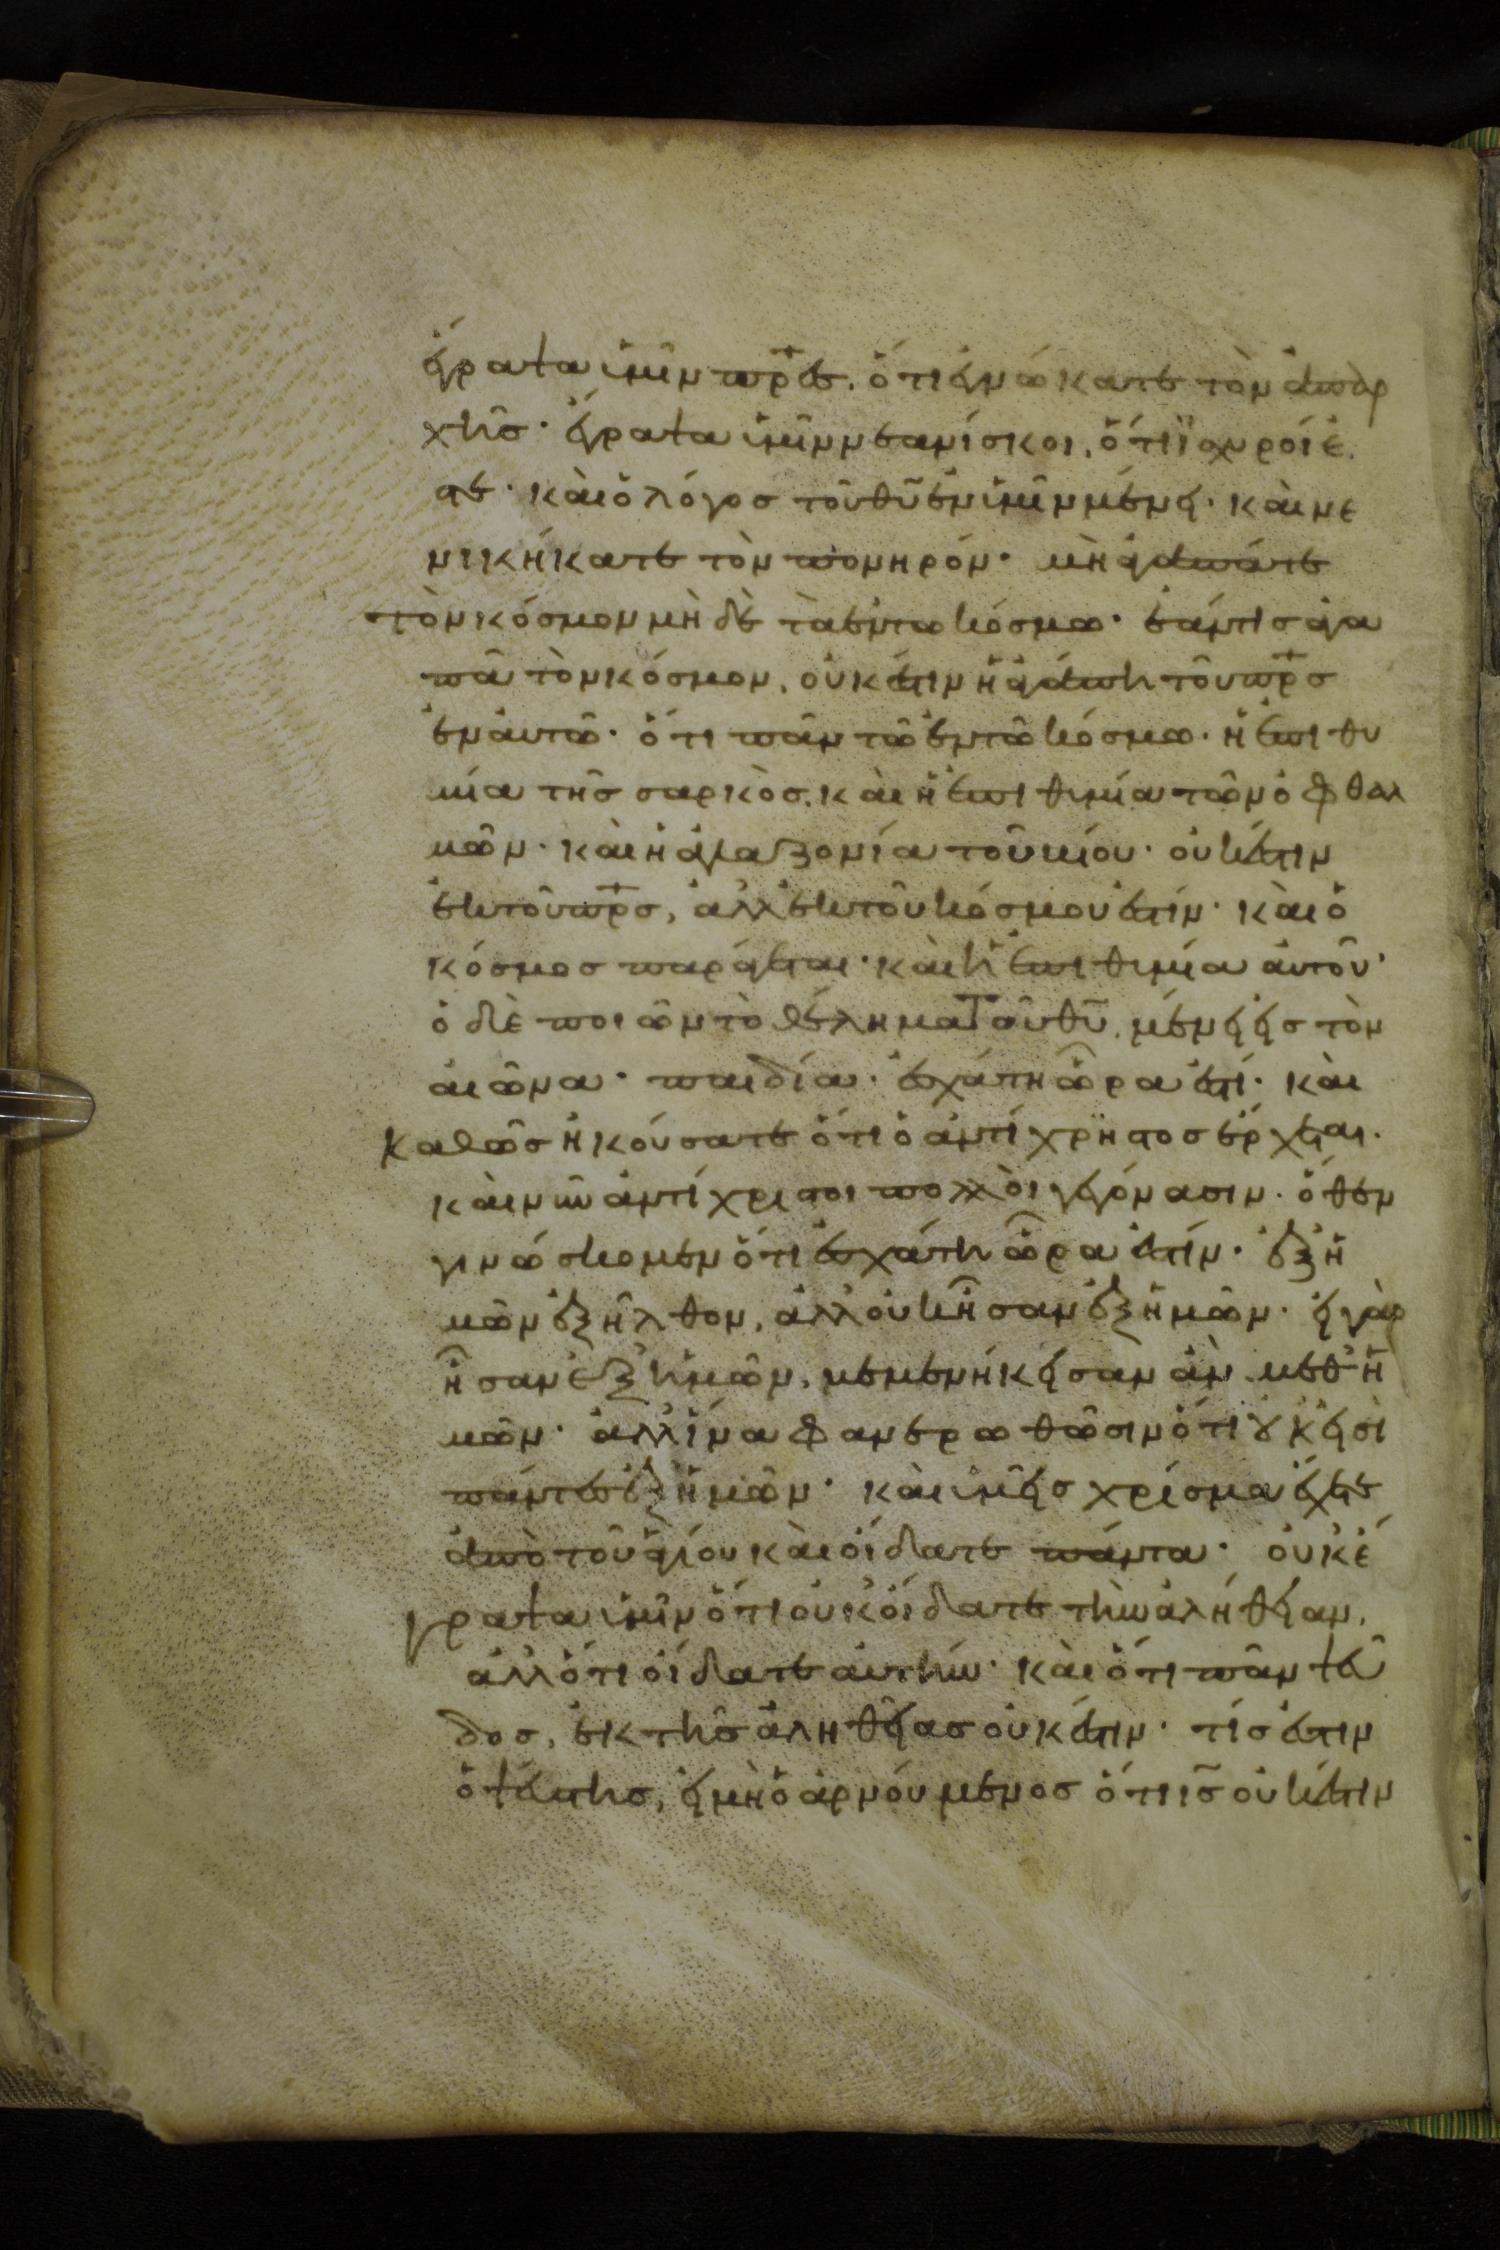 ἔγραψα ὑμῖν πρ̅ες, ὅτι ἐγνώκατε τὸν ἀπαρ
χῆς· ἔγραψα ὑμῖν νεανίσκοι, ὅτι ἰσχυροί ἐ
στε· καὶ ὁ λόγος τοῦ θ̅υ ἐν ὑμῖν μένει· καὶ νε
νικήκατε τὸν πονηρόν· μὴ ἀγαπᾶτε
τὸν κόσμον μὴ δὲ τὰ ἐν τω κόσμω· ἐάν τις ἀγα
πᾶ τὸν κόσμον, οὐκ ἔστιν ἡ ἀγάπη τοῦ πρ̅ς
ἐν αὐτῶ· ὅτι πᾶν τὸ ἐν τῶ κόσμω· ἡ ἐπιθυ
μία τῆς σαρκὸς, καὶ ἡ ἐπιθυμία τῶν ὀφθαλ
μῶν· καὶ ἡ ἀλαζονία τοῦ βίου· οὐκ ἔστιν
ἐκ τοῦ πρ̅ς, ἀλλ ἐκ τοῦ κόσμου ἐστίν· καὶ ὁ
κόσμος παράγεται· καὶ ἡ ἐπιθυμία αὐτοῦ·
ὁ δὲ ποιῶν τὸ θέλημα τοῦ θ̅υ, μένει εἰς τὸν
αἰῶνα· παιδία· ἐσχάτη ὥρα ἐστί· καὶ
καθῶς ἠκούσατε ὅτι ὁ ἀντίχρηστος ἔρχεται.
καὶ νῦν ἀντίχριστοι πολλοὶ γεγόνασιν· ὅθεν
γινώσκομεν ὅτι ἐσχάτη ὥρα ἐστίν· ἐξ ἡ
μῶν ἐξῆλθον, ἀλλ οὐκ ἦσαν ἐξ ἡμῶν· εἰ γὰρ
ἦσαν ἐξ ἡμῶν, μεμενήκεισαν ἂν μεθ ἡ
μῶν· ἀλλ ἵνα φανερωθῶσιν ὅτι οὐκ εἰσὶ
πάντες ἐξ ἡμῶν· καὶ ὑμεῖς χρίσμα ἔχετε
ἀπὸ τοῦ ἁγίου καὶ οἴδατε πάντα· οὐκ ἔ
γραψα ὑμῖν ὅτι οὐκ οἴδατε τὴν ἀλήθειαν,
ἀλλ ὅτι οἴδατε αὐτήν· καὶ ὅτι πᾶν ψεῦ
δος, ἐκ τῆς ἀληθείας οὐκ ἔστιν· τίς ἐστιν
ὁ ψεύστης, εἰ μὴ ὁ ἀρνούμενος ὅτι ι̅ς οὐκ ἔστιν